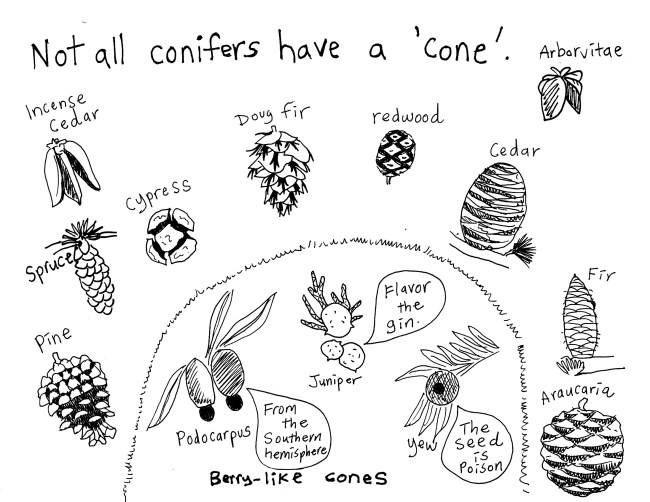 Not all conifers have a 'cone'.
Arborvitae
Incense
Cedar
Doug fir
redwood
Cedar
Cypress
Spruce
Fir
Flavor
the
gin.
Pine
Juniper
Araucaria
From
the
Southern
hemisphere
Podocarpus
Yew
The
seed
is
Poison
Berry-like cones